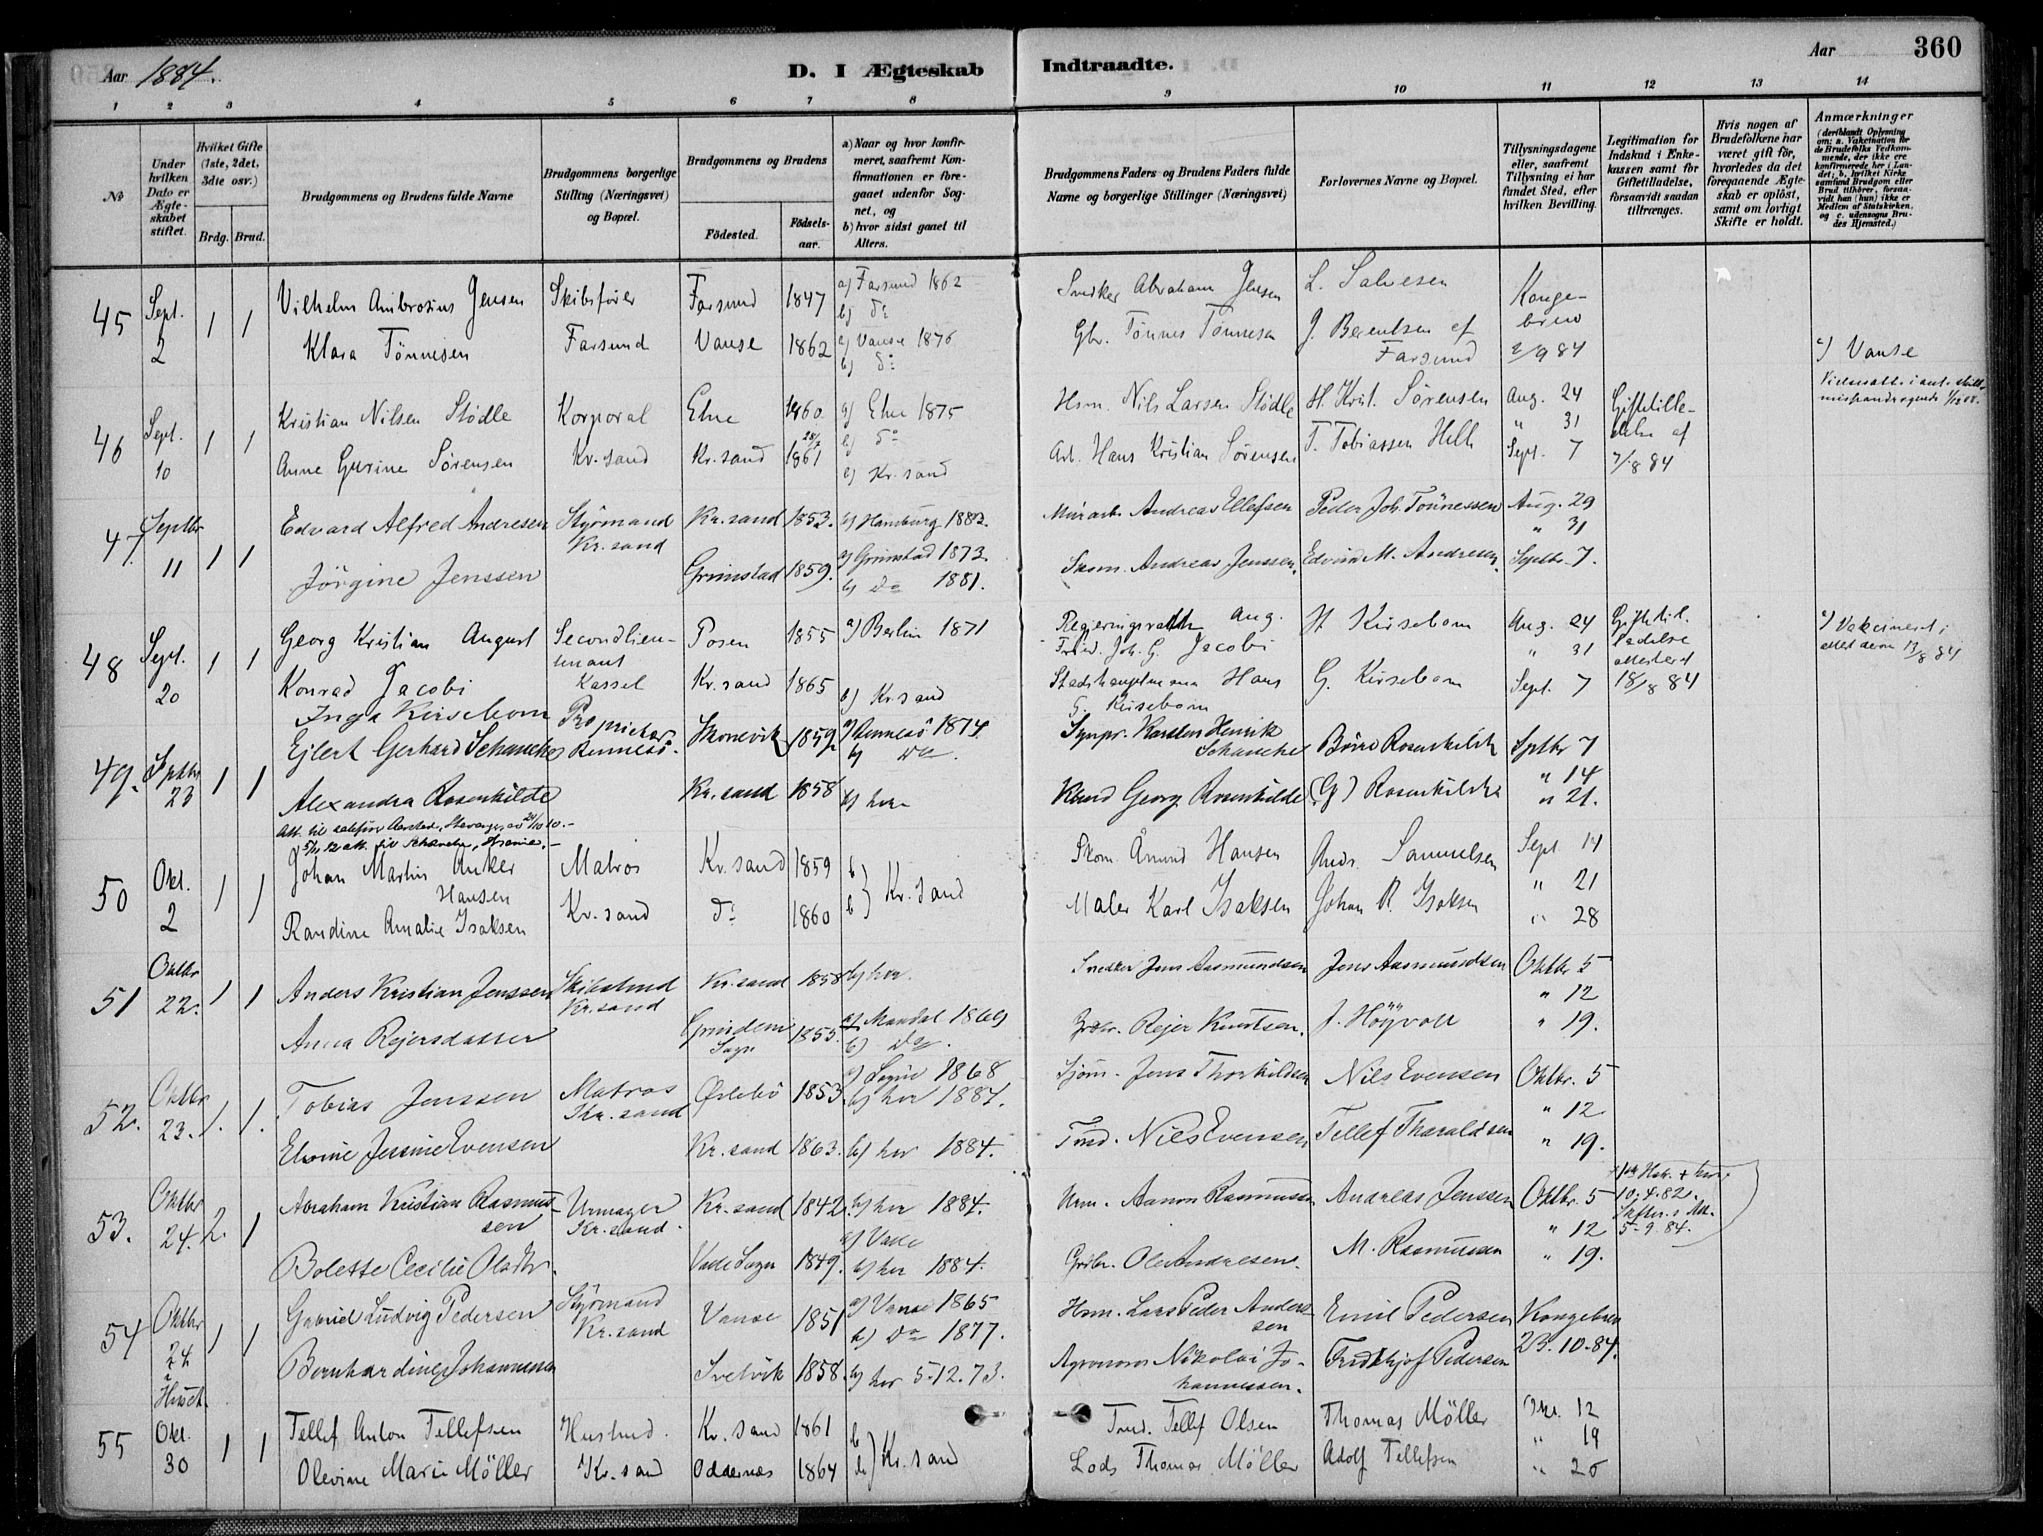 Aar 1884.
D. I Ægteskab
Indtraadte.
Aar
360
1 2 3 4 5 6 7 8 9 10 11 12 13 14
No
Under hvilken Dato er Ægteskabet stiftet.
Hvilket Gifte (1ste, 2det, 3die osv.)
Brdg. Brud.
Brudgommens og Brudens fulde Navne
Brudgommens borgerlige Stilling (Næringsvei) og Bopæl.
Brudgommens og Brudens
Födested.
Födsels-aar.
a) Naar og hvor konfirmeret, saafremt Konfirmationen er foregaaet udenfor Sognet, og
b) hvor sidst gaaet til Alters.
Brudgommens Faders og Brudens Faders fulde Navne og borgerlige Stillinger (Næringsvei)
Forlovernes Navne og Bopæl.
Tillysningsdagene eller, saafremt Tillysning ei har fundet Sted, efter hvilken Bevilling.
Legitimation for Indskud i Enkekassen samt for Giftetilladelse, forsaavidt saadan tiltrænges.
Hvis nogen af Brudefolkene har været gift för, hvorledes da det foregaaende Ægteskab er oplöst, samt om lovligt Skifte er holdt.
Anmærkninger
(deriblandt Oplysning om: a. Vakcination for de Brudefolks Vedkommende, der ikke ere konfirmerede her i Landet; b. hvilket Kirkesamfund Brudgom eller Brud tilhörer, forsaavidt han (hun) ikke er Medlem af Statskirken, og c. udensogns Brudes Hjemsted.)
45 Sept. 2 1 1
Vilhelm Ambrosius Jensen Skibsfører Farsund 1847 a) Farsund 1862 b) do Snedker Abraham Jensen L. Salvesen Kongebrev
Klara Tönnesen Farsund Vanse 1862 a) Vanse 1876 b) do Gbr. Tönnes Tönnesen J. Berentsen af Farsund 2/9 84 c) Vanse
46 Sept. 10 1 1
Kristian Nilsen Stödle Korporal Etne 1860 a) Etne 1875 b) do Hsm. Nils Larsen Stödle H. Krist. Sörensen Aug. 24 " 31 Giftetilladelse af 7/8 84
Anne Gurine Sörensen Kr.sand Kr.sand 1861 b) Kr.sand Arb. Hans Kristian Sörensen T. Tobiassen Sept. 7
47. Septbr 11 1 1
Edvard Alfred Andresen Styrmand Kr.sand Kr.sand 1853. b) Hamburg 1883. Murarb. Andreas Ellefsen Peder Joh. Tönnessen Aug. 29 " 31
Jörgine Jenssen Grimstad 1859. a) Grimstad 1873 b) Do 1881. Skom. Andreas Jenssen. Edvard M. Andresen. Septbr 7.
48 Sept. 20 1 1
Georg Kristian August Konrad Jacobi Secondlieutenant Kassel Posen 1855 a) Berlin 1871 Regjeringsrath Aug. Fried. Joh. G. Jacobi H Kirsebom Aug. 24 " 31 Giftetilladelse attesteret 18/8 84 a) Vakcineret i
Inga Kirsebom Kr.sand 1865 b) Kr.sand Stadshauptmann Hans G. Kirsebom G. Kirsebom Sept. 7
49. Septbr 23 1 1
Ejlert Gerhard Schanche Proprietær Rennesö. Skonevik 1859. a) Rennesö 1874 b) Do. Sgnpr. Karsten Henrik Schanche Börre Rosenkilde Septbr 7
Alexandra Rosenkilde Kr.sand 1858 b) her Kbmd Georg Rosenkilde (G) Rosenkilde " 14 " 21.
50 Okt. 2 1 1
Johan Martin Anker Hansen Matros Kr.sand 1859 b) Kr.sand Skom. Åmund Hansen Andr. Samuelsen Sept 14 " 21
Randine Amalie Isaksen Kr.sand do 1860 b) Maler Karl Isaksen Johan R. Isaksen " 28
51 Oktbr 22. 1 1
Anders Kristian Jenssen Kr.sand Kr.sand 1858 b) her. Snedker Jens Aasmundsen Jens Aasmundsen Oktbr 5 " 12
Anna Rejersdatter Sogn 1855. a) Mandal 1869 b) Do. Rejer Knutsen. J. Höyvoll " 19.
52. Oktbr 23. 1. 1.
Tobias Jenssen Matros Kr.sand Øvlebö 1853 a) Sogne 1868 b) her 1884. Sjöm. Jens Thorkildsen Nils Evensen Oktbr. 5 " 12
Elvine Jensine Evensen Kr.sand 1863. b) her 1884. Tmd. Nils Evensen Tellef Tharaldsen " 19.
53. Oktbr 24. 2. 1
Abraham Kristian Rasmussen Urmager Kr.sand. Kr.sand 1842. b) her 1884. Urm. Aanon Rasmussen Andreas Jenssen Oktbr. 5 " 12 10.4.82. 5-9.84.
Bolette Cecilie Olsdtr. 1849. b) her 1884. Grbr. Ole Andresen. M. Rasmussen " 19.
54 Oktbr 24 1 1
Gabriel Ludvig Pedersen Styrmand Kr.sand Vanse 1851 a) Vanse 1865 b) Do 1877. Hsm. Lars Peder Anderssen Emil Pedersen Kongebrev 23.10.84.
Bernhardine Johannessen Svelvik 1858. b) her 5.12.73. Agronom Nikolai Johannessen. Fridthjof Pedersen
55 Okt. 30 1 1
Tellef Anton Tellefsen Kr.sand 1861 b) Kr.sand Tmd. Tellef Olsen Thomas Möller Okt. 12 " 19
Olevine Marie Möller Kr.sand Oddernes 1864 b) Lods Thomas Möller Adolf Tellefsen " 26